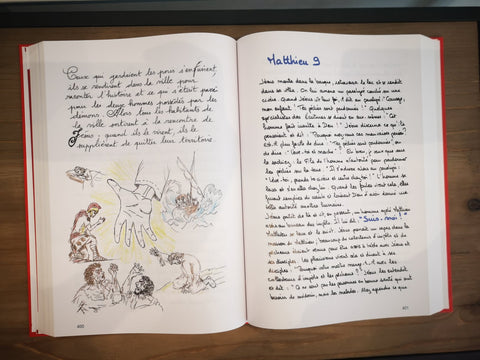 Ceux qui gardaient les porcs s'enfuirent,
ils se rendirent dans la ville pour
raconter l'histoire et ce qui s'était passé
pour les deux hommes possédés par des
démons. Alors tous les habitants de
la ville sortirent à la rencontre de
Jésus ; quand ils le virent, ils le
supplièrent de quitter leur territoire.
400
Matthieu 9
Jésus monta dans la barque, retraversa le lac et se rendit
dans sa ville. On lui amena un paralysé couché sur une
civière. Quand Jésus vit leur foi, il dit au paralysé : "Courage,
mon enfant ! Tes péchés sont pardonnés !" Quelques
spécialistes des Écritures se disent en eux-mêmes : "Cet
homme fait insulte à Dieu !" Jésus discerna ce qu'ils
pensaient et dit : "Pourquoi avez-vous ces mauvaises pensées ?
Est-il plus facile de dire : "Tes péchés sont pardonnés", ou
de dire : "Lève-toi et marche" ? Eh bien, je veux que vous
le sachiez : le Fils de l'homme a l'autorité pour pardonner
les péchés sur la terre." Il s'adressa alors au paralysé :
"Lève-toi, prends ta civière et rentre chez toi !" L'homme se
leva et s'en alla chez lui. Quand les foules virent cela, elles
furent remplies de crainte et louèrent Dieu d'avoir donné une
telle autorité aux êtres humains.
Jésus partit de là et vit, en passant, un homme appelé Matthieu
assis au bureau des impôts. Il lui dit : "Suis-moi !"
Matthieu se leva et le suivit. Jésus prenait un repas dans la
maison de Matthieu ; beaucoup de collecteurs d'impôts et de
pécheurs étaient venus pour être assis à table avec Jésus et
ses disciples. Les pharisiens virent cela et dirent à ses
disciples : "Pourquoi votre maître mange-t-il avec les
collecteurs d'impôts et les pécheurs ?" Jésus les entendit
et dit : "Ce ne sont pas les personnes en bonne santé qui ont
besoin de médecin, mais les malades. Allez apprendre ce que
401